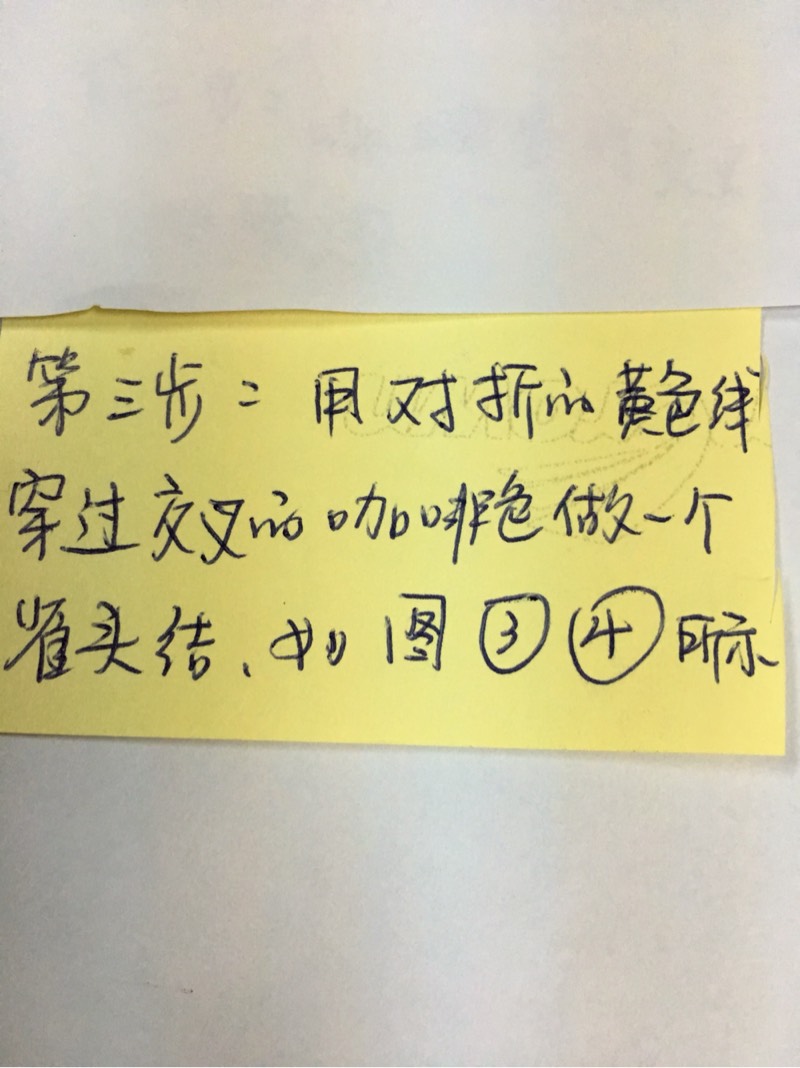 第三步：用对折的黄色线
穿过交叉的咖啡色做一个
雀头结、如图③④所示